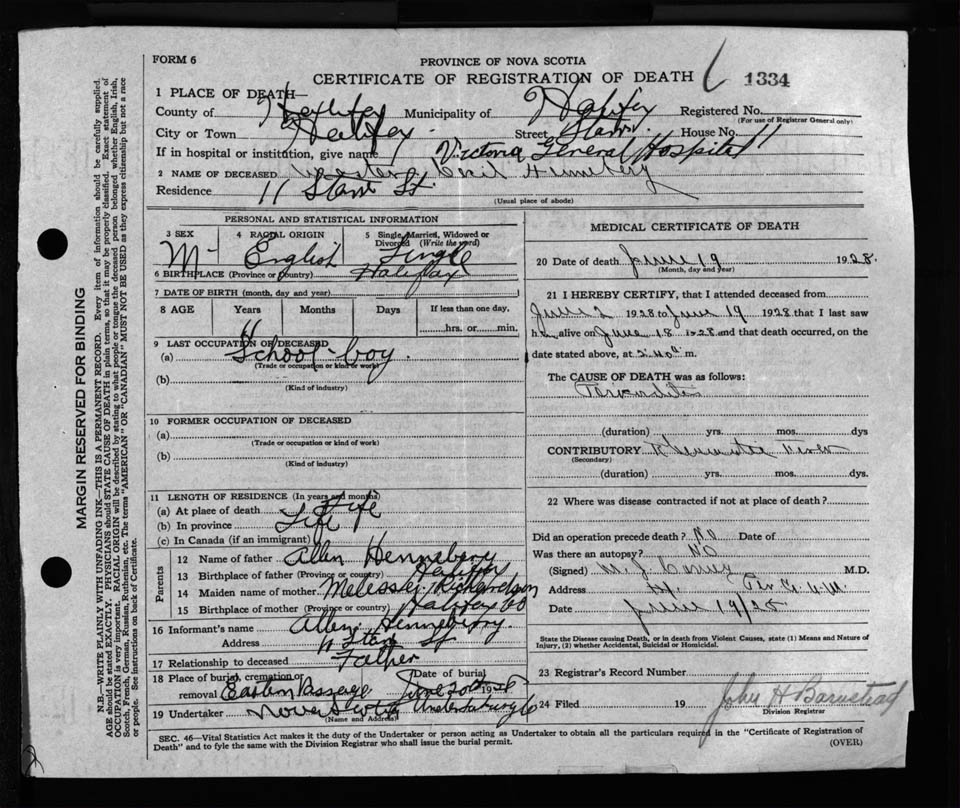 FORM 6
PROVINCE OF NOVA SCOTIA
CERTIFICATE OF REGISTRATION OF DEATH 1334
1 PLACE OF DEATH—
County of Halifax Municipality of Halifax Registered No.
(For use of Registrar General only)
City or Town Halifax Street Starr House No. 11
If in hospital or institution, give name Victoria General Hospital
2 NAME OF DECEASED Cecil Henneberry
Residence 11 Starr St.
(Usual place of abode)
PERSONAL AND STATISTICAL INFORMATION
3 SEX 4 RACIAL ORIGIN 5 Single, Married, Widowed or Divorced (Write the word)
M- English Single
6 BIRTHPLACE (Province or country) Halifax
7 DATE OF BIRTH (month, day and year)
8 AGE Years Months Days If less than one day,
11 hrs. or min.
9 LAST OCCUPATION OF DECEASED
(a) School-boy
(Trade or occupation or kind of work)
(b)
(Kind of industry)
10 FORMER OCCUPATION OF DECEASED
(a)
(Trade or occupation or kind of work)
(b)
(Kind of industry)
11 LENGTH OF RESIDENCE (In years and months)
(a) At place of death Life
(b) In province Life
(c) In Canada (if an immigrant)
Parents
12 Name of father Allen Henneberry
13 Birthplace of father (Province or country) Halifax
14 Maiden name of mother Melessa Richardson
15 Birthplace of mother (Province or country) Halifax Co
16 Informant's name Allen Henneberry.
Address 11 Starr St
17 Relationship to deceased Father
18 Place of burial, cremation or removal Eastern Passage Date of burial June 20th 1928
19 Undertaker Nova Scotia Undertaking Co
(Name and Address)
MEDICAL CERTIFICATE OF DEATH
20 Date of death June 19 1928.
(Month, day and year)
21 I HEREBY CERTIFY, that I attended deceased from
June 2 1928 to June 19 1928 that I last saw
h alive on June 18 1928 and that death occurred, on the
date stated above, at 2.40 a m.
The CAUSE OF DEATH was as follows:
(duration) yrs. mos. dys
CONTRIBUTORY Rheumatic Fever
(Secondary)
(duration) yrs. mos. dys.
22 Where was disease contracted if not at place of death?
Did an operation precede death? No Date of
Was there an autopsy? No
(Signed) M. J. M.D.
Address
Date June 19/28
State the Disease causing Death, or in death from Violent Causes, state (1) Means and Nature of
Injury, (2) whether Accidental, Suicidal or Homicidal.
23 Registrar's Record Number
24 Filed 19 John H Barnstead
Division Registrar
SEC. 46—Vital Statistics Act makes it the duty of the Undertaker or person acting as Undertaker to obtain all the particulars required in the "Certificate of Registration of
Death" and to fyle the same with the Division Registrar who shall issue the burial permit.
(OVER)
MARGIN RESERVED FOR BINDING
N.B.—WRITE PLAINLY WITH UNFADING INK—THIS IS A PERMANENT RECORD. Every item of information should be carefully supplied.
AGE should be stated EXACTLY. PHYSICIANS should STATE CAUSE OF DEATH in plain terms, so that it may be properly classified. Exact statement of
OCCUPATION is very important. RACIAL ORIGIN will be described by stating to what people or tongue the deceased person belonged whether English, Irish,
Scotch, French, German, Russian, Ruthenian, etc. The terms "AMERICAN" or "CANADIAN" MUST NOT BE USED as they express citizenship but not a race
or people. See instructions on back of Certificate.